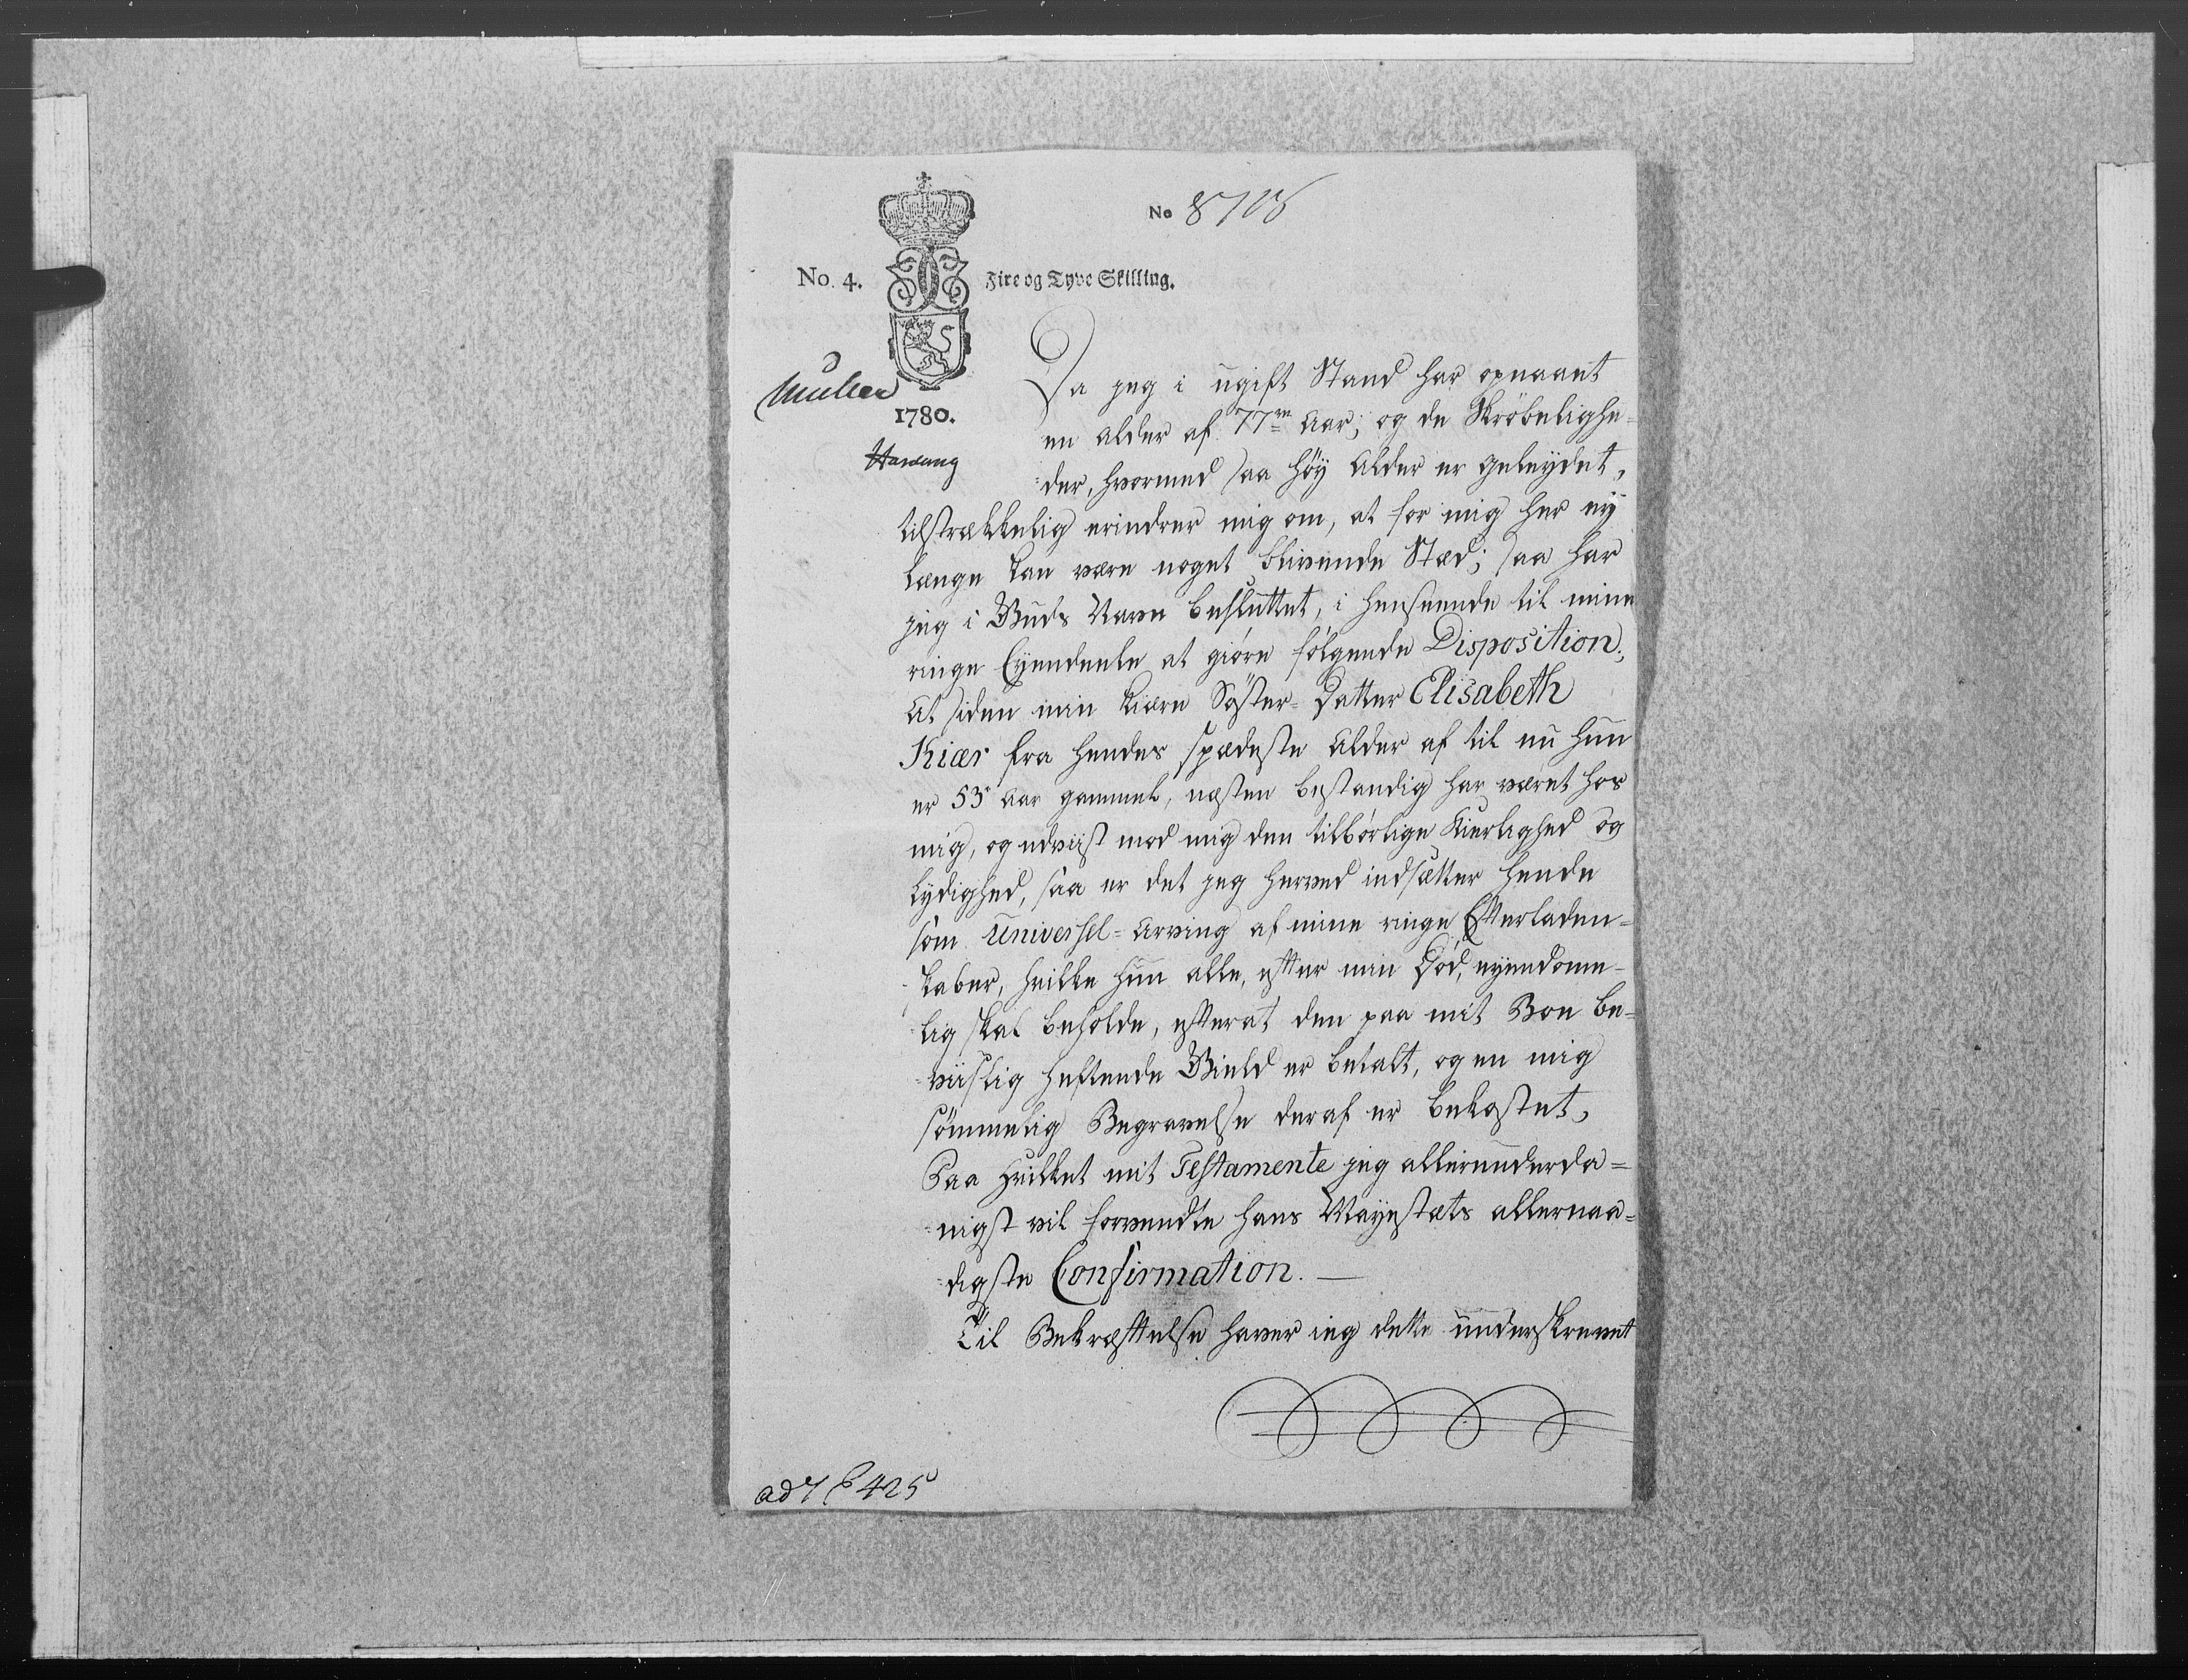 No 8705
No. 4. Fire og Tyve Skilling.
Müller
1780.
Da jeg i ugift Stand har opnaaet
en alder af 77ve Aar; og de Skröbelighe-
der, hvormed saa höy Alder er geleydet,
tilstrækkelig erindrer mig om, at for mig her ey
længe kan være noget blivende Stæd; saa har
jeg i Guds Navn besluttet, i henseende til mine
ringe Eyendeele at giöre fölgende Disposition;
At siden min kiere Söster-Datter Elisabeth
Kiær fra hendes spædeste Alder af til nu hun
er 53 Aar gammel, næsten bestandig har været hos
mig, og udviist mod mig den tilbörlige Kierlighed og
Lydighed, saa er det jeg herved indsætter hende
som Universel-Arving af mine ringe Efterladen-
skaber, hvilke hun alle, efter min Död, eyendom-
lig skal beholde, efterat den paa mit Boe be-
viislig heftende Gield er betalt, og en mig
sömmelig Begravelse deraf er bekostet,
Paa hvilket mit Testamente jeg allerunderda-
nigst vil forvendte hans Mayestæts allernaa-
digste Confirmation. —
Til Bekræftelse haver jeg dette underskrevet
ad 7 E 425